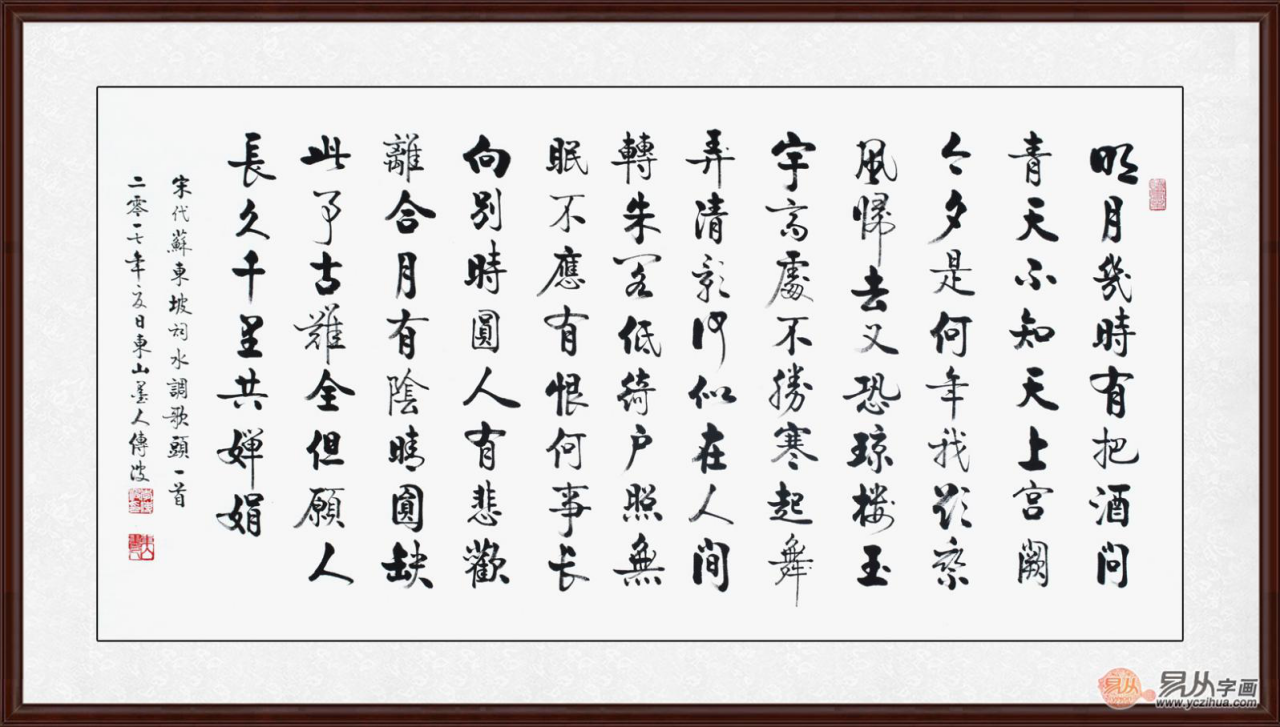 明月幾時有把酒問
青天不知天上宮闕
今夕是何年我欲乘
風歸去又恐琼楼玉
宇高處不勝寒起舞
弄清影何似在人間
轉朱閣低綺户照無
眠不應有恨何事长
向别時圓人有悲歡
離合月有陰晴圓缺
此事古難全但願人
長久千里共嬋娟
宋代蘇東坡词水調歌頭一首
二零一七年夏日東山墨人傳波
易从
易从字画
www.yczihua.com